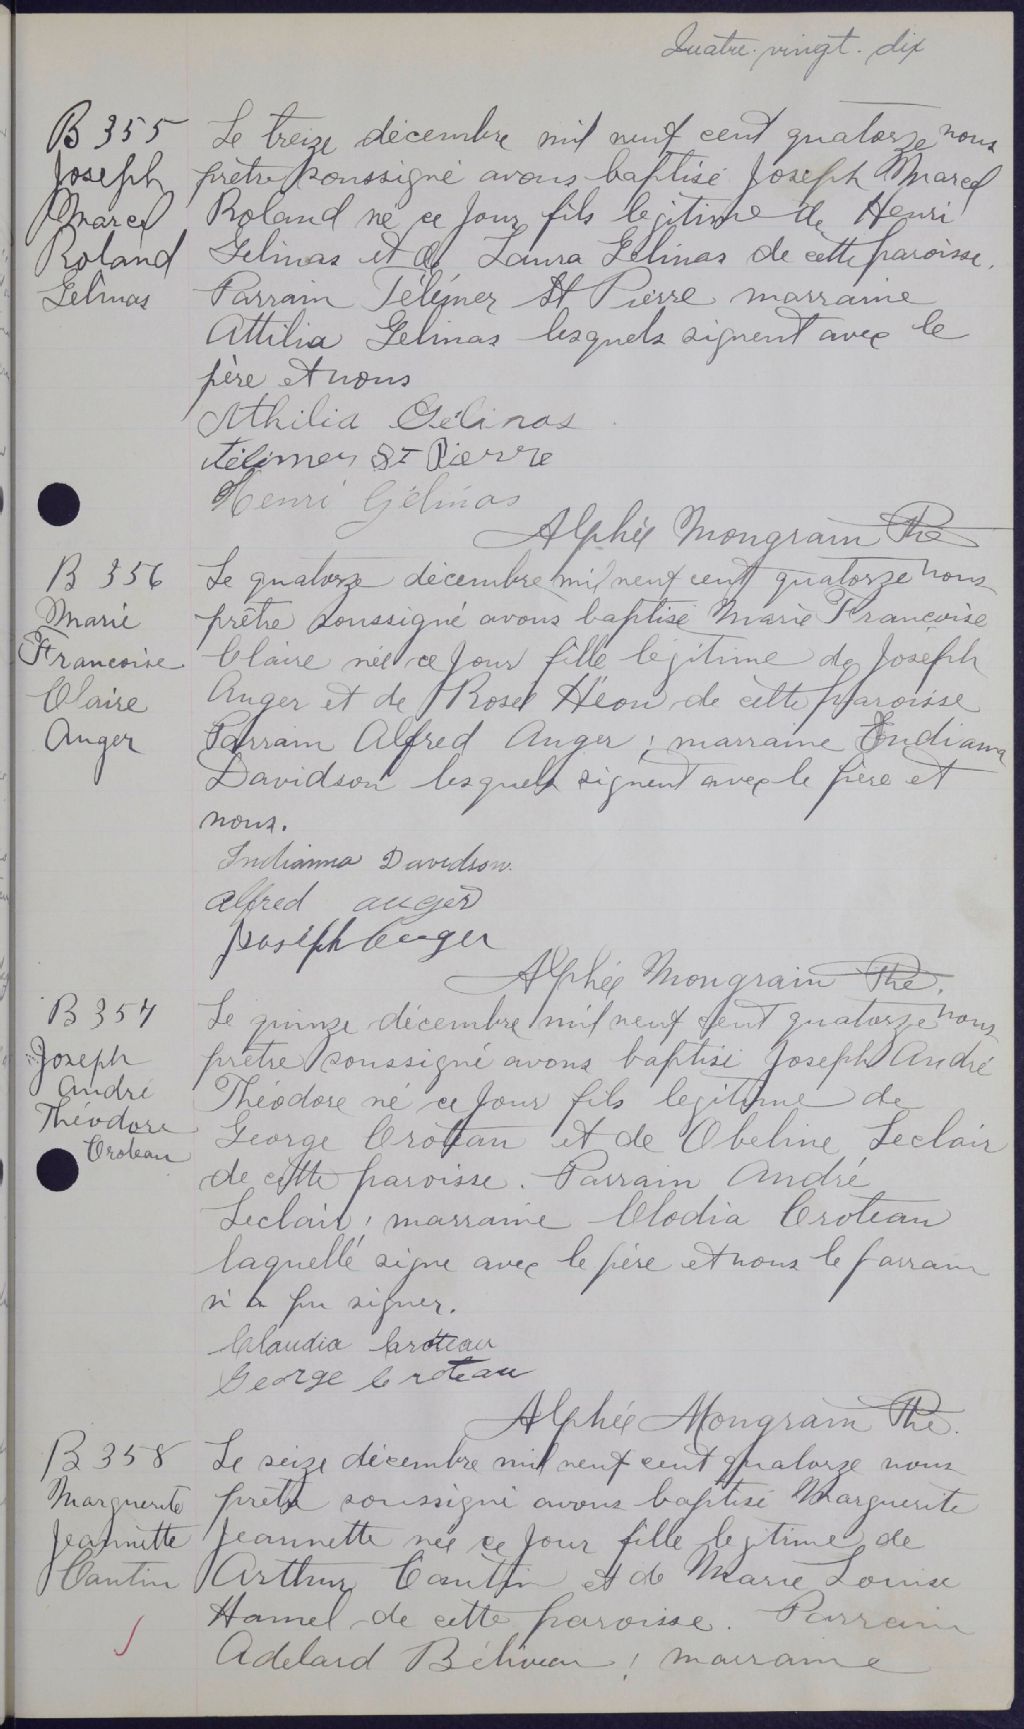 Quatre-vingt-dix
B 355
Joseph
Marcel
Roland
Gelinas
Le treize décembre mil neuf cent quatorze nous
prêtre soussigné avons baptisé Joseph Marcel
Roland né ce jour fils legitime de Henri
Gelinas et de Laura Gelinas de cette paroisse.
Parrain Télémer St Pierre marraine
Attilia Gelinas lesquels signent avec le
père et nous
Athilia Gélinas
Télémer St Pierre
Henri Gélinas
Alphée Mongrain Ptre
B 356
Marie
Francoise
Claire
Anger
Le quatorze décembre mil neuf cent quatorze nous
prêtre soussigné avons baptisé Marie Françoise
Claire née ce jour fille legitime de Joseph
Anger et de Rose Héon de cette paroisse
Parrain Alfred Anger ; marraine Endiama
Davidson lesquels signent avec le père et
nous.
Indianna Davidson.
Alfred Auger
Joseph Auger
Alphée Mongrain Ptre.
B 357
Joseph
André
Théodore
Croteau
Le quinze décembre mil neuf cent quatorze nous
prêtre soussigné avons baptisé Joseph André
Théodore né ce jour fils legitime de
George Croteau et de Obeline Leclair
de cette paroisse. Parrain André
Leclair ; marraine Clodia Croteau
laquelle signe avec le père et nous le parrain
n'a pu signer.
Claudia Croteau
George Croteau
Alphée Mongrain Ptre.
B 358
Marguerite
Jeannette
Cantin
Le seize décembre mil neuf cent quatorze nous
prêtre soussigné avons baptisé Marguerite
Jeannette née ce jour fille legitime de
Arthur Cantin et de Marie Louise
Hamel de cette paroisse. Parrain
Adelard Béliveau ; marraine